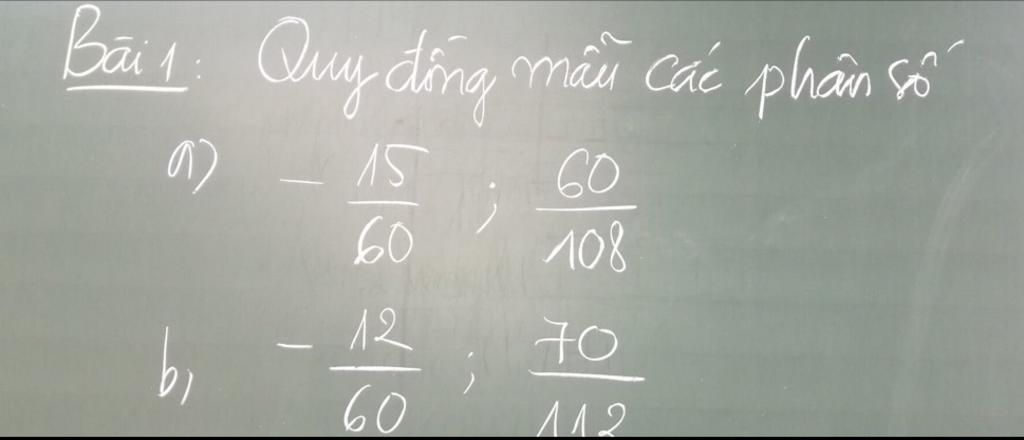 Bài 1: Quy đồng mẫu các phân số
a) - 15/60 ; 60/108
b, - 12/60 ; 70/112